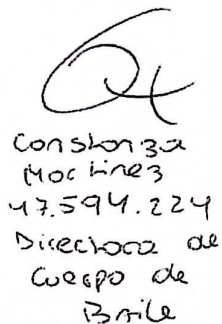 Constanza
Martinez
47.594.224
Directora de
Cuerpo de
Baile